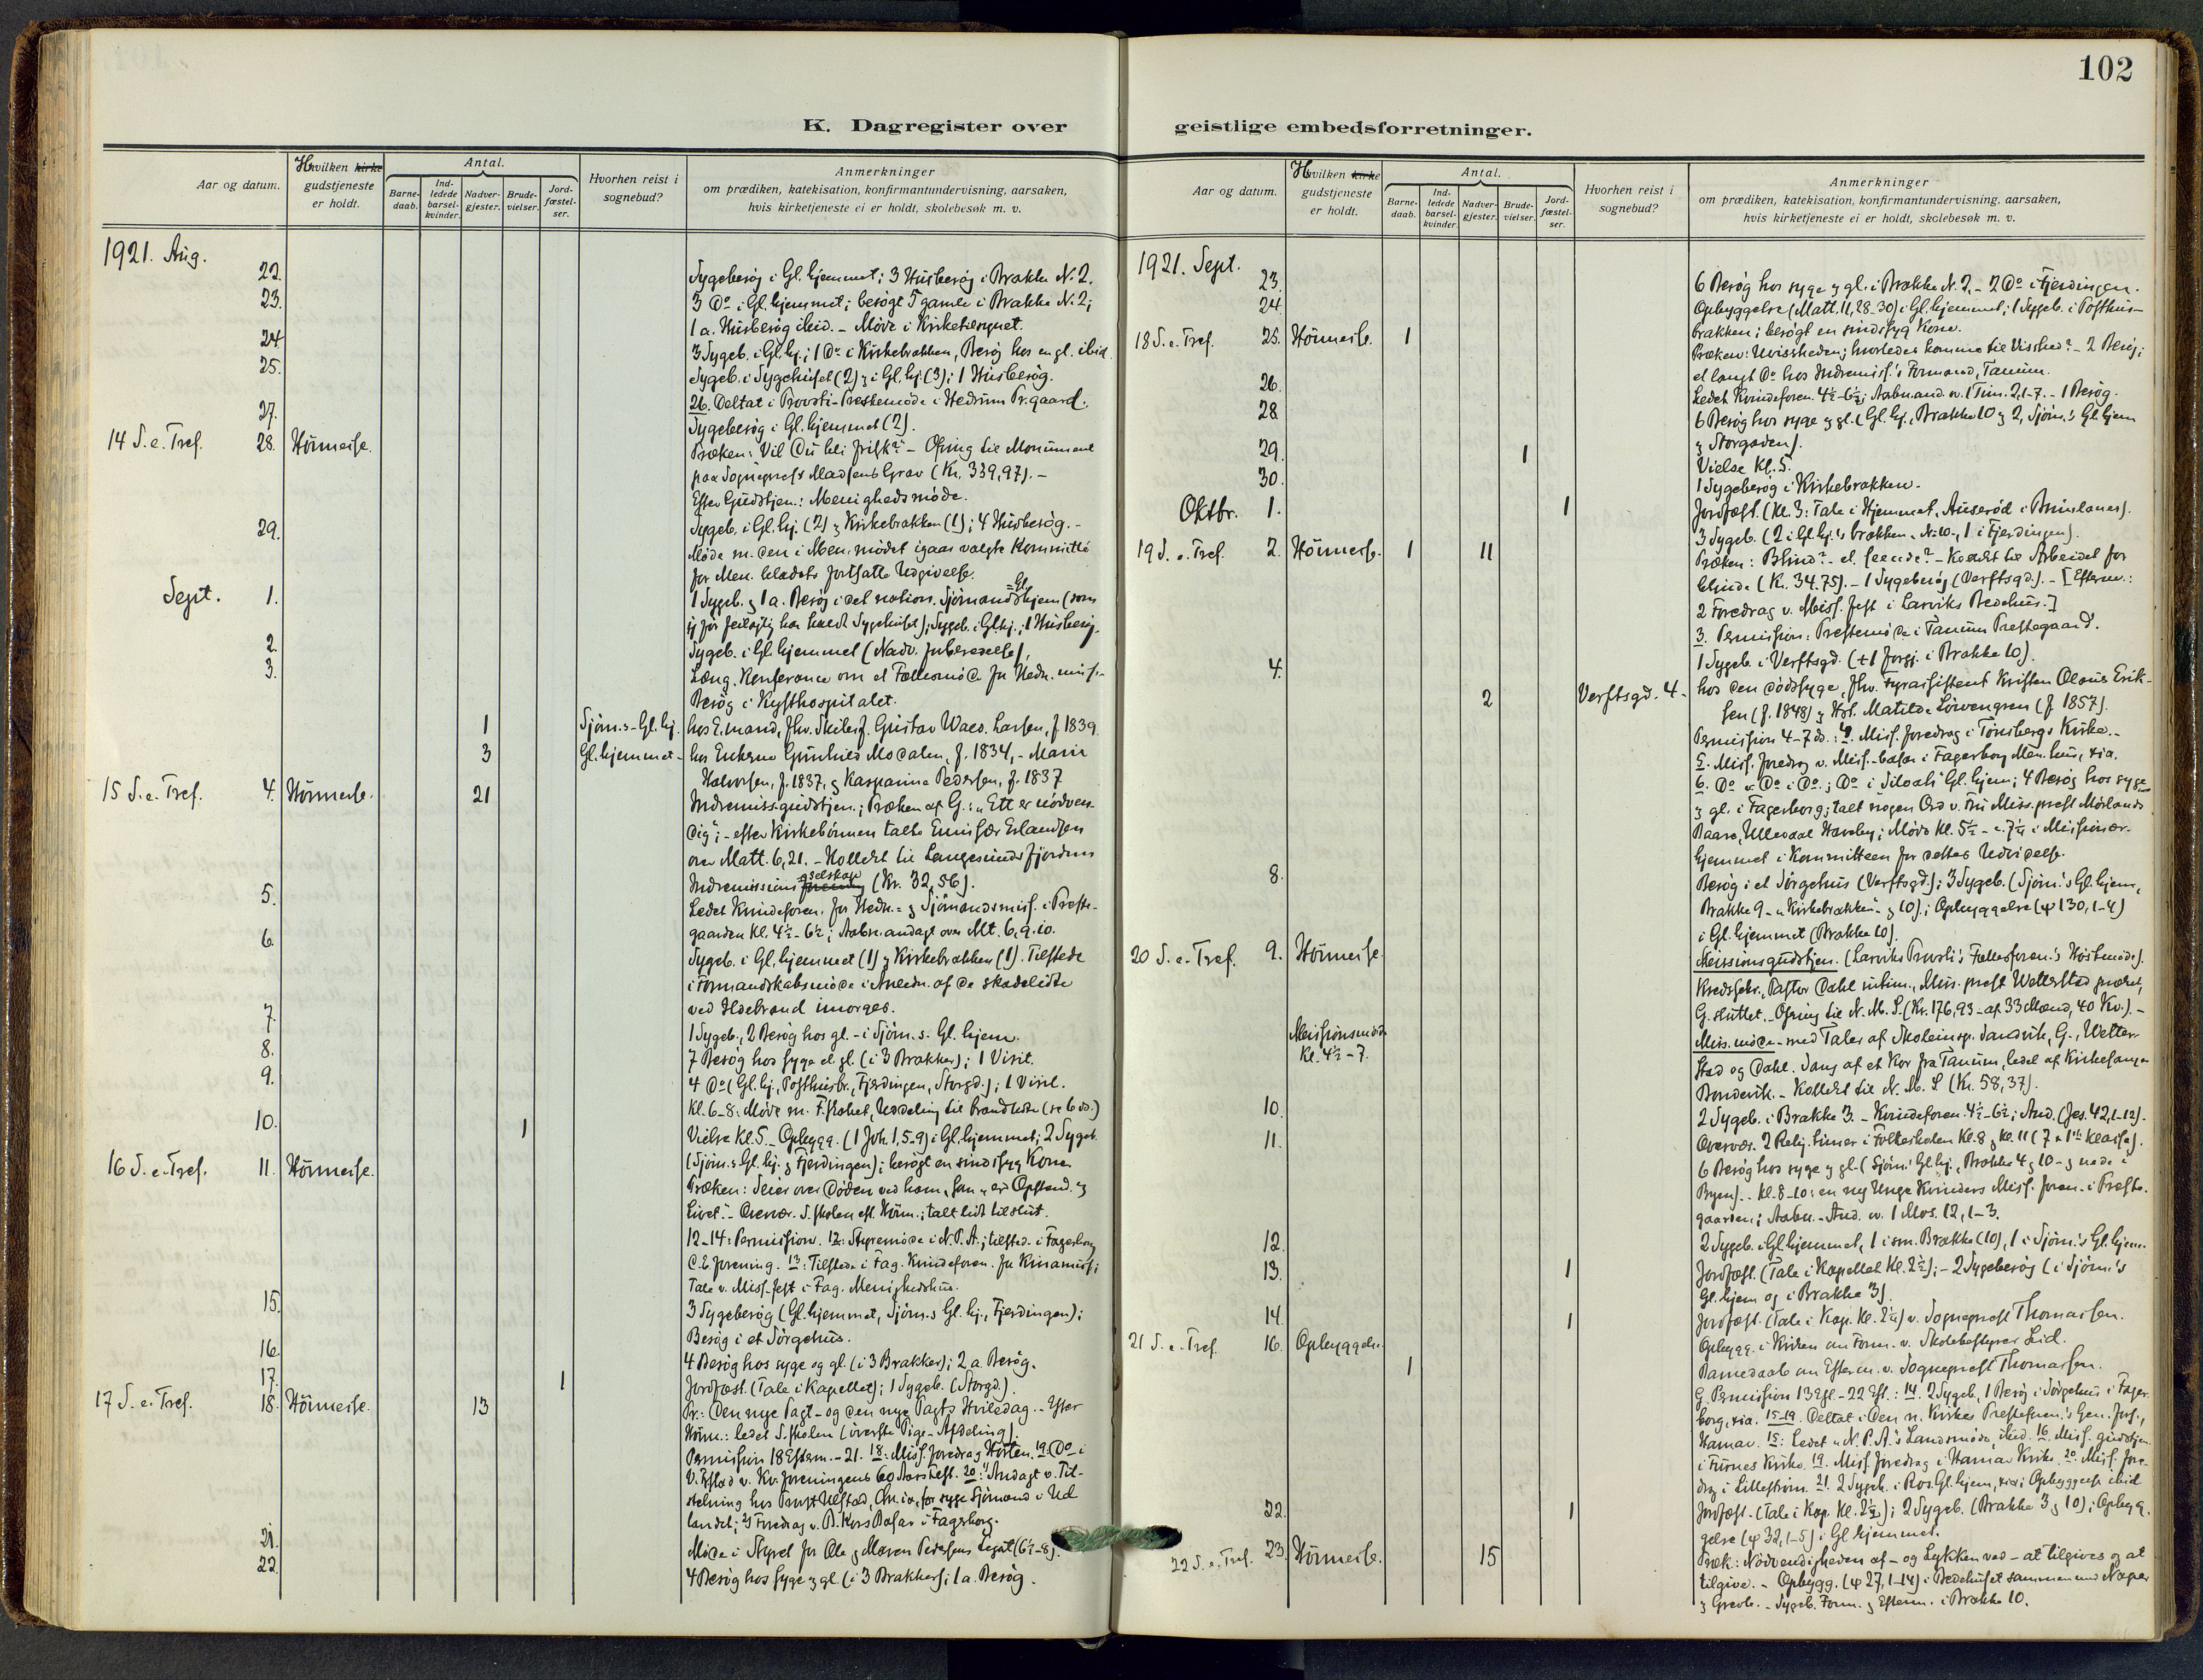 102
K. Dagregister over geistlige embedsforretninger.
Aar og datum.
Hvilken kirke gudstjeneste er holdt.
Antal.
Barne-daab.
Ind-ledede barsel-kvinder.
Nadver-gjester.
Brude-vielser.
Jord-fæstel-ser.
Hvorhen reist i sognebud?
Anmerkninger
om prædiken, katekisation, konfirmantundervisning, aarsaken,
hvis kirketjeneste ei er holdt, skolebesøk m. v.
1921. Aug.
22. Sygebesøg i Gl. hjemmet; 3 Husbesøg i Brakke N. 2.
23. 3 Do i Gl. hjemmet; besøgt 5 gamle i Brakke N. 2;
1 a. Husbesøg ibid. - Møde i Kirketilsynet.
24. 3 Sygeb. i Gl. hj.; 1 Do i Kirkebrakken, Besøg hos en gl. ibid.
25. Sygeb. i Sygehuset (2) & i Gl. hj. (3); 1 Husbesøg.
26. Deltat i Provsti-Prestemøde i Hedrum Pr.gaard.
27. Sygebesøg i Gl. hjemmet (2).
14 S. e. Tref. 28. Høimesse. Præken: Vil Du bli frisk? - Ofring til Monument
paa Sogneprest Madsens Grav (Kr. 339,97). -
Efter Gudstjen.: Menighedsmøde.
29. Sygeb. i Gl. hj. (2) & Kirkebrakken (1); 4 Husbesøg. -
Møde m. den i Men. mødet igaar valgte Kommitté
for Men. bladets fortsatte Udgivelse.
Sept. 1. 1 Sygeb. & 1 a. Besøg i det nation. Sjømands Gl. hjem (som
jeg før feilagtig har kaldt Sygehuset); Sygeb. i Gl. hj.; 1 Husbesøg.
2. Sygeb. i Gl. hjemmet (Nadv. forberedelse).
3. Læng. Konferance om et Fællesmøde for Hedn. miss. -
Besøg i Kysthospitalet.
1 Sjøm.s-Gl. hj. hos E.mand, fhv. Skibsf. Gustav Wald. Larsen, f. 1839
3 Gl. hjemmet - hos Enkerne Gunhild Modalen, f. 1834, - Maria
Halvorsen, f. 1837, & Kaspanna Pedersen, f. 1837
15 S. e. Tref. 4. Høimesse. 21 Indremiss.gudstjen.; Præken af G.: "Ett er nødven-
dig"; - efter Kirkebønnen talte Emissær Erlandsen
over Matt. 6,21. - Kollekt til Langesundsfjordens
Indremissionsselskap (Kr. 32,56).
5. Ledet Kvindeforen. for Hedn. = & Sjømandsmiss. i Preste-
gaarden Kl. 4½-6½; Aabn. andagt over Mt. 6,9.10.
6. Sygeb. i Gl. hjemmet (1) & Kirkebrakken (1). Tilstede
i Formandskabsmøde i Anledn. af de skadelidte
ved Ildebrand imorges.
7. 1 Sygeb., 2 Besøg hos gl. - i Sjøm.s. Gl. hjem.
8. 7 Besøg hos syge el. gl. (i 3 Brakker); 1 Visit.
9. 4 Do (Gl. hj., Posthusbr., Fjerdingen, Storgd.); 1 Visit.
Kl. 6-8: Møde m. F.skabet, Uddeling til brandlidte (se 6 ds.)
10. 1 Vielse Kl. 5. - Opbygg. (1 Joh. 1,5-9) i Gl. hjemmet; 2 Sygeb.
(Sjøm.s Gl. hj. & Fjerdingen); besøgt en sindssyg Kone.
16 S. e. Tref. 11. Høimesse. Præken: Seier over Døden ved ham, som "er Opstand. &
Livet". - Overvær. S. skolen eft. Høim.; talt lidt tilslut.
12-14: Permission. 12: Styremøde i N. P. A.; tilsted. i Fagerborg
C. E. forening. 13: Tilstede i Fag. Kvindeforen. for Kinamiss.;
Tale v. Miss. fest i Fag. Menighedshus.
15. 3 Sygebesøg (Gl. hjemmet, Sjøm.s Gl. hj., Fjerdingen);
Besøg i et Sørgehus.
16. 4 Besøg hos syge og gl. (i 3 Brakker); 2 a. Besøg.
17. 1 Jordfæst. (Tale i Kapellet); 1 Sygeb. (Storgd.).
17 S. e. Tref. 18. Høimesse. 13 Pr.: Den nye Pagt - og den nye Pagts Hviledag. - Efter
Høim.: ledet S. skolen (øverste Pige-Afdeling).
Permission 18 Efterm. - 21. 18: Miss. foredrag Horten. 19: Do i
v. Kv. foreningens 60 Aars Fest. 20: Andagt v. Til-
stelning hos Provst Ulstad, Chr.ia, for syge Sjømænd i Ud
landet; Foredrag v. R. Kors Basar i Fagerborg.
21. Møde i Styret for Ole & Maren Pedersens Legat (6½-8).
22. 4 Besøg hos syge & gl. (i 3 Brakker); 1 a. Besøg.
Aar og datum.
Hvilken kirke gudstjeneste er holdt.
Antal.
Barne-daab.
Ind-ledede barsel-kvinder.
Nadver-gjester.
Brude-vielser.
Jord-fæstel-ser.
Hvorhen reist i sognebud?
Anmerkninger
om prædiken, katekisation, konfirmantundervisning, aarsaken,
hvis kirketjeneste ei er holdt, skolebesøk m. v.
1921. Sept.
23. 6 Besøg hos syge & gl. i Brakke N. 2. - 2 Do i Fjerdingen.
24. Opbyggelse (Matt. 11,28-30) i Gl. hjemmet; 1 Sygeb. i Posthus-
brakken; besøgt en sindssyg Kone.
18 S. e. Tref. 25. Høimesse. 1 Præken: Uvissheden; hvorledes komme til Visshed? - 2 Besøg;
et langt Do hos Indremiss.'s Formand, Tanum.
26. Ledet Kvindeforen. 4½-6½; Aabn. and. ov. 1 Tim. 2,1-7. - 1 Besøg.
28. 6 Besøg hos syge & gl. (Gl. hj., Brakke 10 & 2, Sjøm.'s Gl. hjem
& Storgaden).
29. 1 Vielse Kl. 5.
30. 1 Sygebesøg i Kirkebrakken.
Oktbr. 1. 1 Jordfæst. (Kl. 3: Tale i Hjemmet, Auserød i Brunlanes).
3 Sygeb. (2 i Gl. hj.'s brakken, N. 10, 1 i Fjerdingen).
19 S. e. Tref. 2. Høimesse. 1 11 Præken: Blind? - el. seende? - Kollekt til Arbeidet for
blinde (Kr. 34.75). - 1 Sygebesøg (Verftsgd.). - [Efterm.:
2 Foredrag v. Miss. fest i Larviks Bedehus.]
3. Permission: Prestemøde i Tanum Prestegaard.
4. 1 Sygeb. i Verftsgd. (+ 1 forgj. i Brakke 10).
2 Verftsgd. 4. - hos den dødssyge, fhv. fyrassistent Kristen Olaus Erik-
sen (f. 1848) & Hst. Matilde Löwengren (f. 1857).
Permission 4-7 ds.: 4. Miss. foredrag i Tønsbergs Kirke. -
5. Miss. foredrag v. Miss.-basar i Fagerborg Men. hus, Kr.ia.
6. Do v. Do i Do.; Do i Siloah's Gl. hjem; 4 Besøg hos syge
& gl. i Fagerborg; talt nogen Ord v. Fru Miss. prest Mørlands
Baare, Ullevaal Haveby; Møde Kl. 5½ - c. 7¼ i Missionær-
hjemmet i Kommitteen for dettes Udvidelse.
8. Besøg i et Sørgehus (Verftsgd.); 3 Sygeb. (Sjøm.'s Gl. hjem,
Brakke 9 - "Kirkebrakken" - & 10); Opbyggelse (ψ 130, 1-4)
i Gl. hjemmet (Brakke 10).
20 S. e. Tref. 9. Høimesse. Missionsgudstjen. (Larviks Provsti's Fællesforen.'s Høstmøde).
Kredssekr., Pastor Dahl intim., Miss. prest Wetterstad præket,
G. sluttet. - Ofring til N. M. S. (Kr. 176,93 - af 33 Mænd, 40 Kv.). -
Missionsmøde Kl. 4½-7. Miss. møde - med Taler af Skoleinsp. Sandvik, G., Wetter-
stad og Dahl. Sang af et Kor fra Tanum, ledet af Kirkesanger
Bondevik. - Kollekt til N. M. S. (Kr. 58,37).
10. 2 Sygeb. i Brakke 3. - Kvindeforen. 4½-6½; And. (Jes. 42,1-12).
11. Overvær. 2 Relig. timer i Folkeskolen Kl. 8 & Kl. 11 (7 & 1ste Klasse).
6 Besøg hos syge & gl. (Sjøm.'s Gl. hj., Brakke 4 & 10 - & nede i
Byen). - Kl. 8-10: en ny Unge Kvinders Miss. foren. i Preste-
gaarden; Aabn.-And. ov. 1 Mos. 12, 1-3.
12. 2 Sygeb. i Gl. hjemmet, 1 i sm. Brakke (10), 1 i Sjøm.'s Gl. hjem.
13. 1 Jordfæst. (Tale i Kapellet Kl. 2½); - 2 Sygebesøg (i Sjøm.'s
Gl. hjem og i Brakke 3).
14. 1 Jordfæst. (Tale i Kap. Kl. 2¼) v. Sogneprest Thomassen.
21 S. e. Tref. 16. Opbyggelse. Opbygg. i Kirken om Form. v. Skolebestyrer Lid.
1 Barnedaab om Efterm. v. Sogneprest Thomassen.
G. Permission 13 Eft. - 22 Eft.: 14. 2 Sygeb., 1 Besøg i Sørgehus i Fager-
borg, Kr.ia. 15-19. Deltat i Den n. Kirkes Presteforen.'s Gen. fors.,
Hamar. 15: Ledet "N. P. A."'s Landsmøde, ibid. 16. Miss. gudstjen.
i Furnes Kirke. 19. Miss. foredrag i Hamar Kirke. 20. Miss. fore-
drag i Lillestrøm. 21. 2 Sygeb. i Ros. Gl. hjem, Kr.ia; Opbyggelse ibid.
22. 1 Jordfæst. (Tale i Kap. Kl. 2½); 2 Sygeb. (Brakke 3 & 10); Opbyg-
gelse (ψ 32, 1-5) i Gl. hjemmet.
22 S. e. Tref. 23. Høimesse. 15 Præk.: Nødvendigheden af - og Lykken ved - at tilgives og at
tilgive. - Opbygg. (ψ 27, 1-14) i Bedehuset sammen med
& Grevle. - Sygeb. Form. & Efterm. i Brakke 10.